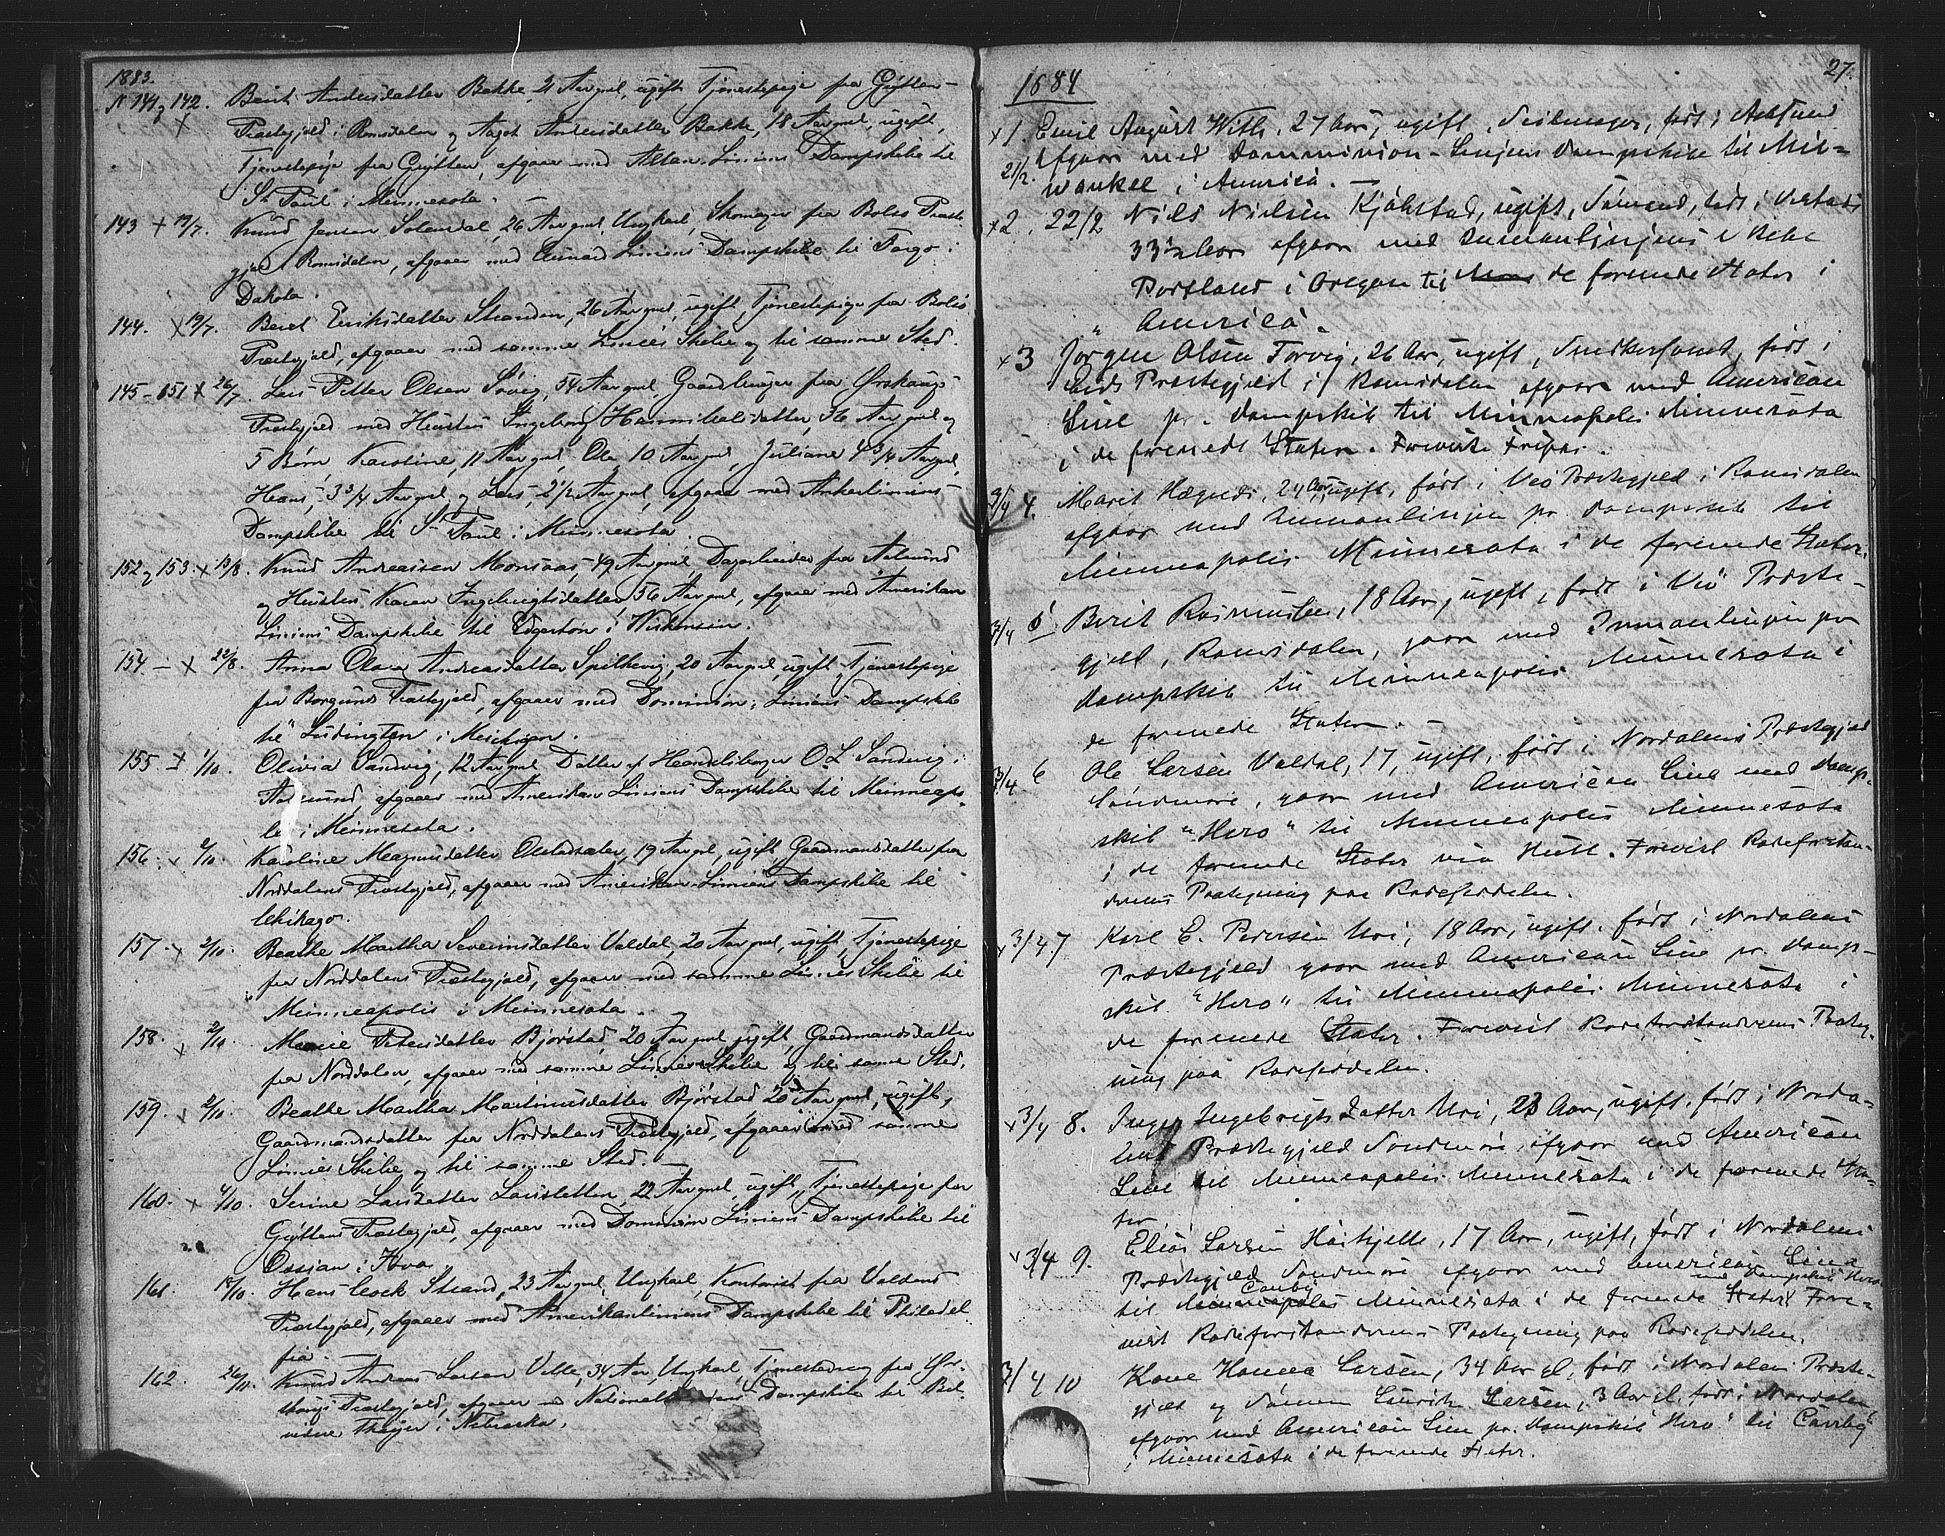 1883.
N 141 & 142. Berit Andersdatter Bakke, 21 Aar gml, ugift Tjenestepige fra Grytten
Præstegjeld i Romsdalen og Aagot Andersdatter Bakke, 18 Aar gml, ugift,
Tjenestepige fra Grytten, afgaaer med Allan-Liniens Dampskibe til
St Paul i Minnesota.
143 + 19/7. Knud Jensen Solendal, 26 Aar gml Ungkarl, fra Bolsø Præste-
gjeld Romsdalen, afgaaer med Cunard Liniens Dampskibe til Fargo i
Dakota.
144. x 19/7. Beret Eriksdatter Stranden, 26 Aar gml, ugift Tjenestepige fra Bolsø
Præstegjeld, afgaaer med samme Linies Skibe og til samme Sted.
145-151 x 26/7. Lars Petter Olsen Søvig, 54 Aar gml, Gaardbruger fra Ørskougs
Præstegjeld med Hustru Ingeborg Hannibalsdatter 36 Aar gml og
5 Børn Karoline, 11 Aar gml, Ole 10 Aar gml, Juliane 4 3/4 Aar gml,
Hans, 3 3/4 Aar gml og Lars, 2 1/2 Aar gml, afgaaer med Ankerliniens
Dampskibe til St Paul i Minnesota.
152 & 153 x 15/8. Knud Andreassen Monsaas, 49 Aar gml, Dagarbeider fra Aalesund
og Hustru Karen Ingebrigtsdatter 56 Aar gml, afgaaer med Amerikan
Liniens Dampskibe til Edgerton i Wiskonsin.
154 - x 22/8. Anna Olava Andreasdatter Spilkevig, 20 Aar gml, ugift, Tjenestepige
fra Borgunds Præstegjeld, afgaaer med Dominion-Liniens Dampskibe
til Ludington i Michigan.
155. x 1/10. Olivia Sandvig, 12 Aar gml Datter af Handelsborger O L Sandvig i
Aalesund, afgaaer med Amerikan Liniens Dampskibe til Minneapo-
lis i Minnesota.
156. x 2/10. Karoline Magnusdatter 19 Aar gml, ugift, Gaardmandsdatter fra
Norddalens Præstegjeld, afgaaer med Amerikan-Liniens Dampskibe til
Chikago.
157. x 2/10. Beathe Martha Severinsdatter Valdal, 20 Aar gml, ugift, Tjenestepige
fra Norddalens Præstegjeld, afgaaer med samme Linies Skibe til
Minneapolis i Minnesota.
158. x 2/10. Marie Petersdatter Bjørstad, 20 Aar gml, ugift, Gaardmandsdatter
fra Norddalen, afgaaer med samme Linies Skibe og til samme Sted.
159. x 2/10. Beathe Martha Martinusdatter Bjørstad 20 Aar gml, ugift,
Gaardmandsdatter fra Norddalens Præstegjeld, afgaaer med samme
Linies Skibe og til samme Sted.
160. x 4/10. Serine Larsdatter 22 Aar gml, ugift, Tjenestepige fra
Gryttens Præstegjeld, afgaaer med Dominion Liniens Dampskibe til
Ossian i Iova.
161. 18/10. Hans Cock Strand, 23 Aar gml, Ungkarl, Kontorist fra Voldens
Præstegjeld, afgaaer med Amerikanliniens Dampskibe til Philadel-
fia.
162. 26/11. Knud Andreas Larsen Velle, 34 Aar, Ungkarl, Tjenestedreng fra Ør-
skougs Præstegjeld, afgaaer med National Dampskibe til Bel-
videre Thayer i Nebraska.
27.
1884
x 1. Emil August With, 27 Aar, ugift, født i Aalesund
21/2. afgaar med Dominion-Linjens Dampskibe til Mil=
waukee i America.
x 2. 22/2 Nils Nielsen Kjølstad, ugift, Sømand, født i
33 1/2 Aar afgaar med Inmanlinjens Skibe
Portland i Oregon de forenede Stater i
America.
x 3 " Jørgen Olsen Torvig, 26 Aar, ugift, Snedkersvend, født i
Eids Præstegjeld i Romsdalen afgaar med American
Line pr. Dampskib til Minneapolis Minnesota
i de forenede Stater. Foreviste Fripas.
3/4 4. Marit Hægnes, 24 Aar, ugift, født i Veø Præstegjeld i Romsdalen
afgaar med Inmanlinjen pr Dampskib til
Minneapolis Minnesota i de forenede Stater.
3/4 5 Berit Rasmussen, 18 Aar, ugift, født i Veø Præste-
gjeld, Romsdalen, gaar med Inmanlinjen pr
Dampskib til Minneapolis Minnesota i
de forenede Stater. -
3/4 6 Ole Larsen Valdal, 17, ugift, født i Nordalens Præstegjeld
Søndmøre, gaar med American Line med Damp-
skib "Hero" til Minneapolis Minnesota
i de forenede Stater via Hull. Forevist Rodeforstan-
derens Paategning paa Rodeseddelen.
x 3/4 7 Karl E. Pedersen Uri, 18 Aar, ugift, født i Nordalens
Præstegjeld gaar med American Line pr. Damp-
skib "Hero" til Minneapolis Minnesota i
de forenede Stater. Forevist Rodeforstanderens Paateg-
ning paa Rodeseddelen.
x 3/4 8. Inger Ingebrigtsdatter Uri, 23 Aar, ugift, født i Norda=
lens Præstegjeld Søndmøre, afgaar med American
Line til Minneapolis Minnesota i de forenede Sta-
ter
x 3/4 9. Elias Larsen Høikjelle, 17 Aar, ugift, født i Nordalens
Præstegjeld Søndmøre afgaar med American Line
med Dampskib Hero
Canby
til Minneapolis Minnesota i de forenede Stater. Fore=
vist Rodeforstanderens Paategning paa Rodeseddelen.
3/4 10 Kone Hanna Larsen, 34 Aar gl, født i Nordalen Præste-
gjeld og Sønnen Laurits Larsen, 3 Aar gl, født i Nordalen,
afgaar med American Line pr. Dampskib "Hero" til Canby
i Minnesota i de forenede Stater.